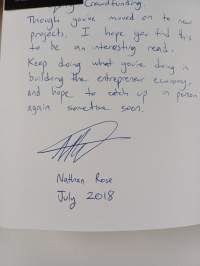 Crowdfunding.
Though you've moved on to new
projects, I hope you find this
to be an interesting read.
Keep doing what you're doing in
building the entrepreneur economy,
and hope to catch up in person
again sometime soon.
Nathan Rose
July 2018